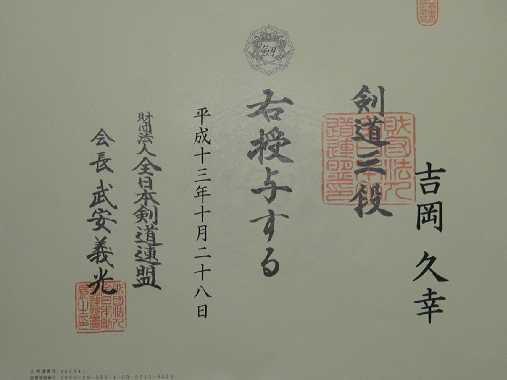 剣道三段
吉岡久幸
右授与する
平成十三年十月二十八日
財団法人全日本剣道連盟
会長 武安義光